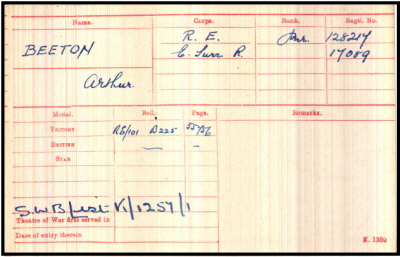 Name. Corps. Rank. Regtl. No.
BEETON R. E. Pnr. 128214
E. Surr R. 17089
Arthur.
Medal. Roll. Page. Remarks.
VICTORY RE/101 B225
BRITISH — —
STAR
S.W.B List V/1257/1
Theatre of War first served in
Date of entry therein
K. 1380